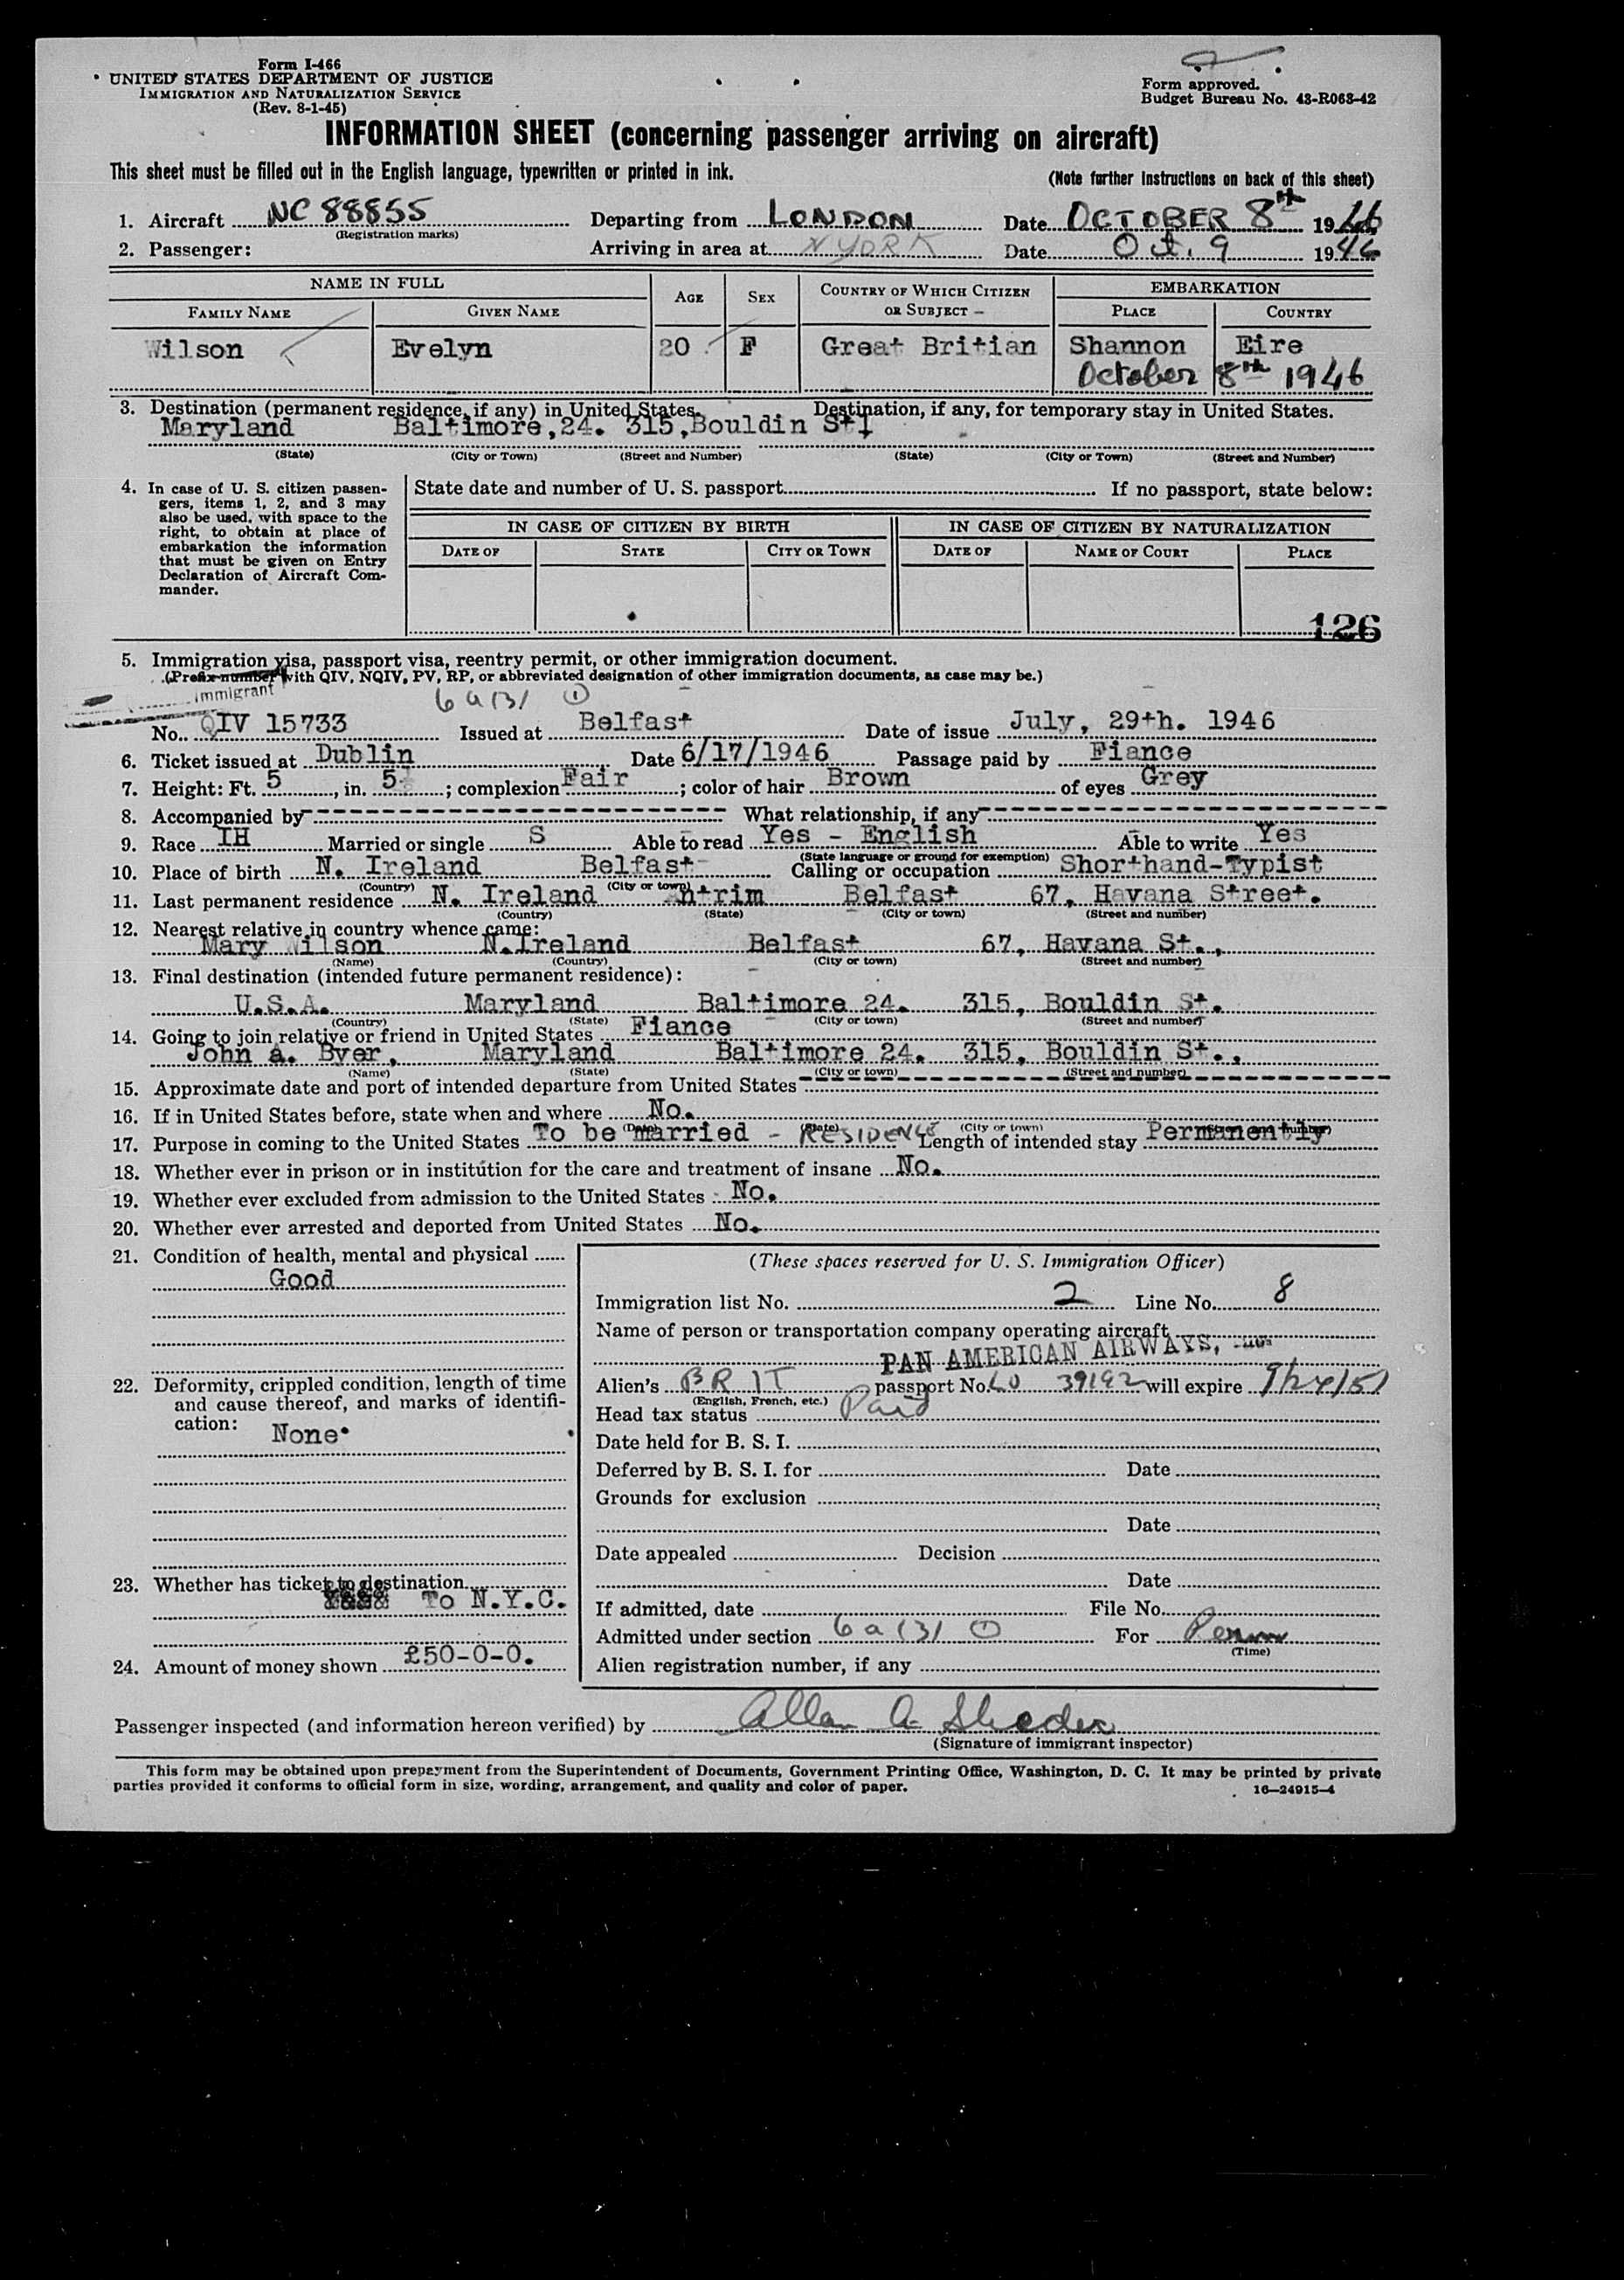 Form I-466
UNITED STATES DEPARTMENT OF JUSTICE
IMMIGRATION AND NATURALIZATION SERVICE
(Rev. 8-1-45)
Form approved.
Budget Bureau No. 43-R063-42
INFORMATION SHEET (concerning passenger arriving on aircraft)
This sheet must be filled out in the English language, typewritten or printed in ink.
(Note further instructions on back of this sheet)
1. Aircraft NC 88855 Departing from LONDON Date OCTOBER 8th 1946
(Registration marks)
2. Passenger: Arriving in area at N YORK Date Oct. 9 1946
NAME IN FULL AGE SEX COUNTRY OF WHICH CITIZEN OR SUBJECT – EMBARKATION
FAMILY NAME GIVEN NAME PLACE COUNTRY
Wilson Evelyn 20 F Great Britian Shannon Eire
October 8th 1946
3. Destination (permanent residence, if any) in United States. Destination, if any, for temporary stay in United States.
Maryland Baltimore,24. 315,Bouldin St.
(State) (City or Town) (Street and Number) (State) (City or Town) (Street and Number)
4. In case of U. S. citizen passen-
gers, items 1, 2, and 3 may
also be used, with space to the
right, to obtain at place of
embarkation the information
that must be given on Entry
Declaration of Aircraft Com-
mander.
State date and number of U. S. passport If no passport, state below:
IN CASE OF CITIZEN BY BIRTH IN CASE OF CITIZEN BY NATURALIZATION
DATE OF STATE CITY OR TOWN DATE OF NAME OF COURT PLACE
126
5. Immigration visa, passport visa, reentry permit, or other immigration document.
(Prefix number with QIV, NQIV, PV, RP, or abbreviated designation of other immigration documents, as case may be.)
Immigrant 6a(3) ①
No. QIV 15733 Issued at Belfast Date of issue July, 29th. 1946
6. Ticket issued at Dublin Date 6/17/1946 Passage paid by Fiance
7. Height: Ft. 5, in. 5; complexion Fair; color of hair Brown of eyes Grey
8. Accompanied by What relationship, if any
9. Race IH Married or single S Able to read Yes - English Able to write Yes
(State language or ground for exemption)
10. Place of birth N. Ireland Belfast Calling or occupation Shorthand-Typist
(Country) (City or town)
11. Last permanent residence N. Ireland Antrim Belfast 67, Havana Street.
(Country) (State) (City or town) (Street and number)
12. Nearest relative in country whence came:
Mary Wilson N.Ireland Belfast 67, Havana St.,
(Name) (Country) (City or town) (Street and number)
13. Final destination (intended future permanent residence):
U.S.A. Maryland Baltimore 24. 315, Bouldin St.
(Country) (State) (City or town) (Street and number)
14. Going to join relative or friend in United States Fiance
John a. Byer, Maryland Baltimore 24. 315, Bouldin St.,
(Name) (State) (City or town) (Street and number)
15. Approximate date and port of intended departure from United States
16. If in United States before, state when and where No.
(Date) (State) (City or town) (Street and number)
17. Purpose in coming to the United States To be married - RESIDENCE Length of intended stay Permanently
18. Whether ever in prison or in institution for the care and treatment of insane No.
19. Whether ever excluded from admission to the United States No.
20. Whether ever arrested and deported from United States No.
21. Condition of health, mental and physical
Good
22. Deformity, crippled condition, length of time
and cause thereof, and marks of identifi-
cation:
None.
23. Whether has ticket to destination
To N.Y.C.
24. Amount of money shown £50-0-0.
(These spaces reserved for U. S. Immigration Officer)
Immigration list No. 2 Line No. 8
Name of person or transportation company operating aircraft
PAN AMERICAN AIRWAYS,
Alien's BRIT passport No. LO 39192 will expire 9/24/51
(English, French, etc.)
Head tax status Paid
Date held for B. S. I.
Deferred by B. S. I. for Date
Grounds for exclusion
Date
Date appealed Decision
Date
If admitted, date File No.
Admitted under section 6a(3) ① For Perm
(Time)
Alien registration number, if any
Passenger inspected (and information hereon verified) by Allan A.
(Signature of immigrant inspector)
This form may be obtained upon prepayment from the Superintendent of Documents, Government Printing Office, Washington, D. C. It may be printed by private
parties provided it conforms to official form in size, wording, arrangement, and quality and color of paper.
16—24915-4